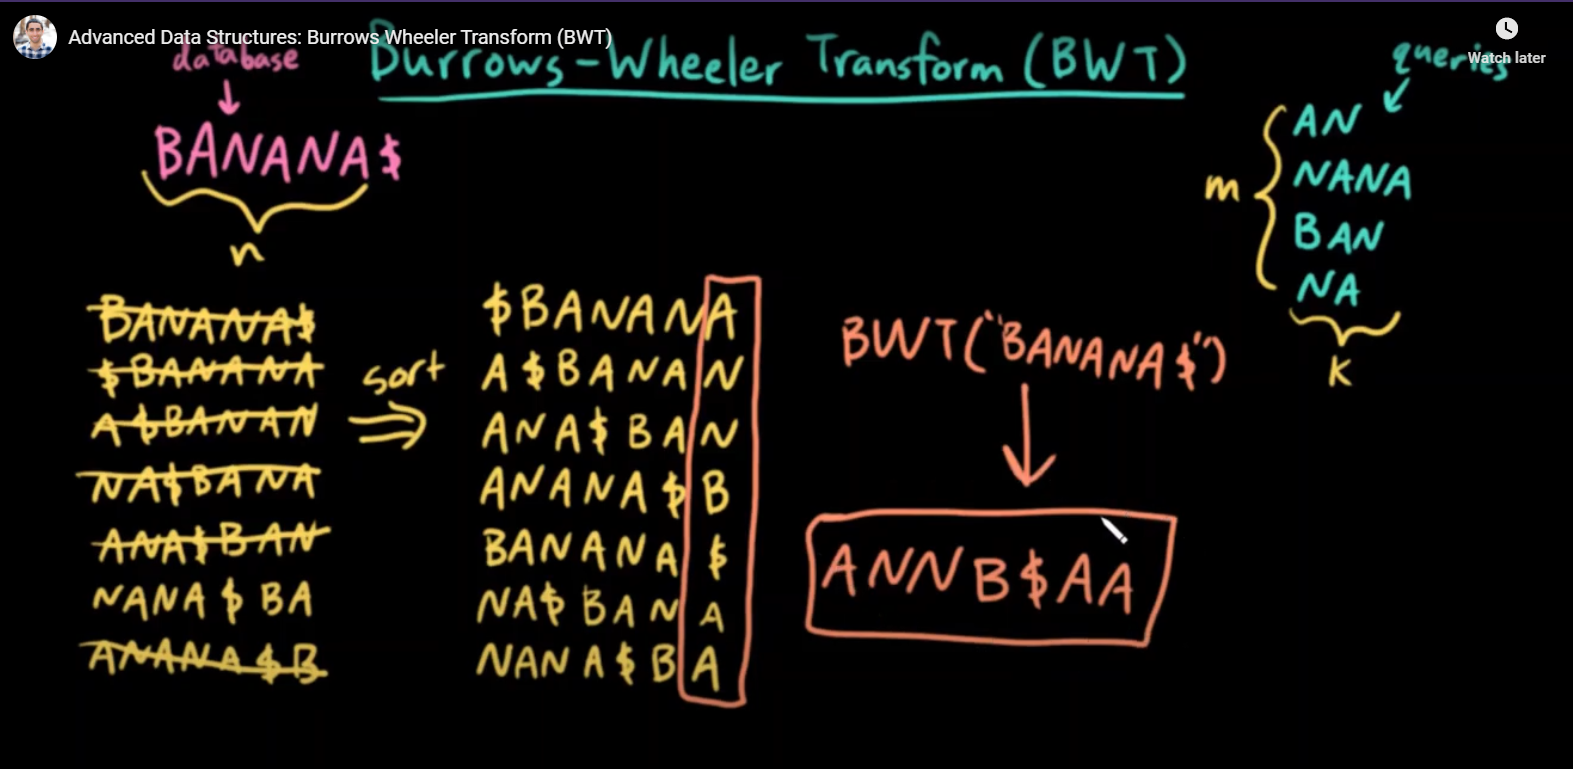 Advanced Data Structures: Burrows Wheeler Transform (BWT)
Watch later
Burrows-Wheeler Transform (BWT)
database
BANANA$
n
queries
AN
NANA
BAN
NA
m
k
BANANA$
$BANANA
A$BANAN
NA$BANA
ANA$BAN
NANA$BA
ANANA$B
sort
$BANANA
A$BANAN
ANA$BAN
ANANA$B
BANANA$
NA$BANA
NANA$BA
BWT("BANANA$")
ANNB$AA